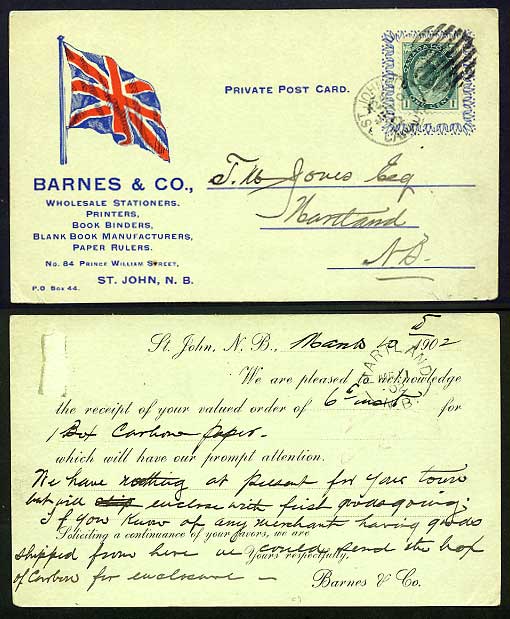 PRIVATE POST CARD.
BARNES & CO.,
WHOLESALE STATIONERS.
PRINTERS,
BOOK BINDERS,
BLANK BOOK MANUFACTURERS,
PAPER RULERS.
No. 84 PRINCE WILLIAM STREET,
ST. JOHN, N. B.
P.O BOX 44.
ST. JOHN
1 1
Jones Esq
Hartland
N.B.
St. John, N. B., March 10 1902
HARTLAND
N.B.
We are pleased to acknowledge
the receipt of your valued order of 6th inst for
1 Box Carbon paper.
which will have our prompt attention.
We have nothing at present for your town
but will enclose with first goods going;
If you know of any merchant having goods
Soliciting a continuance of your favors, we are
shipped from here we could send the box
Yours respectfully,
of Carbon for enclosure —
Barnes & Co.